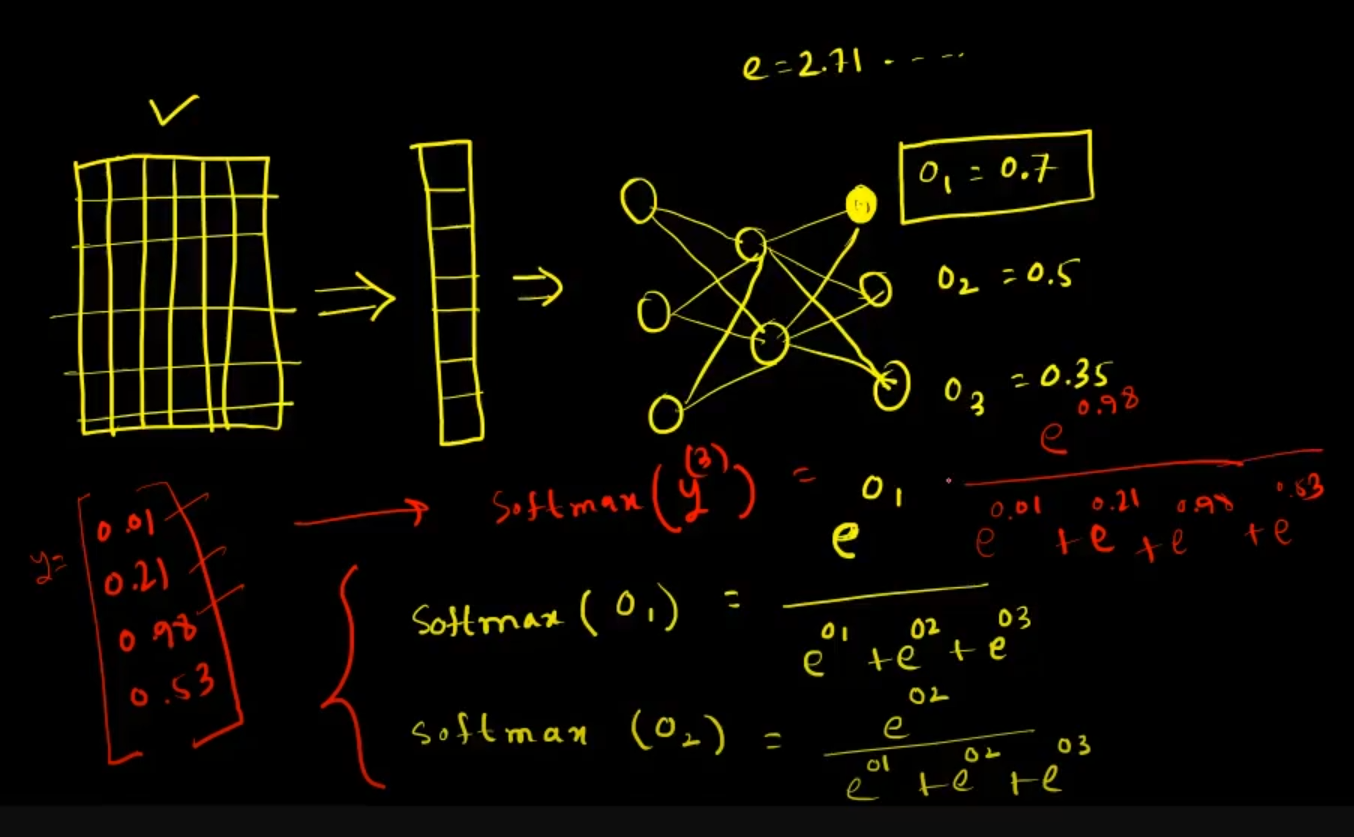 e = 2.71 . - - --
O1 = 0.7
O2 = 0.5
O3 = 0.35
y = [0.01 0.21 0.98 0.53]
softmax (y^(3)) = e^0.98 / (e^0.01 + e^0.21 + e^0.98 + e^0.53)
softmax (O1) = e^O1 / (e^O1 + e^O2 + e^O3)
softmax (O2) = e^O2 / (e^O1 + e^O2 + e^O3)